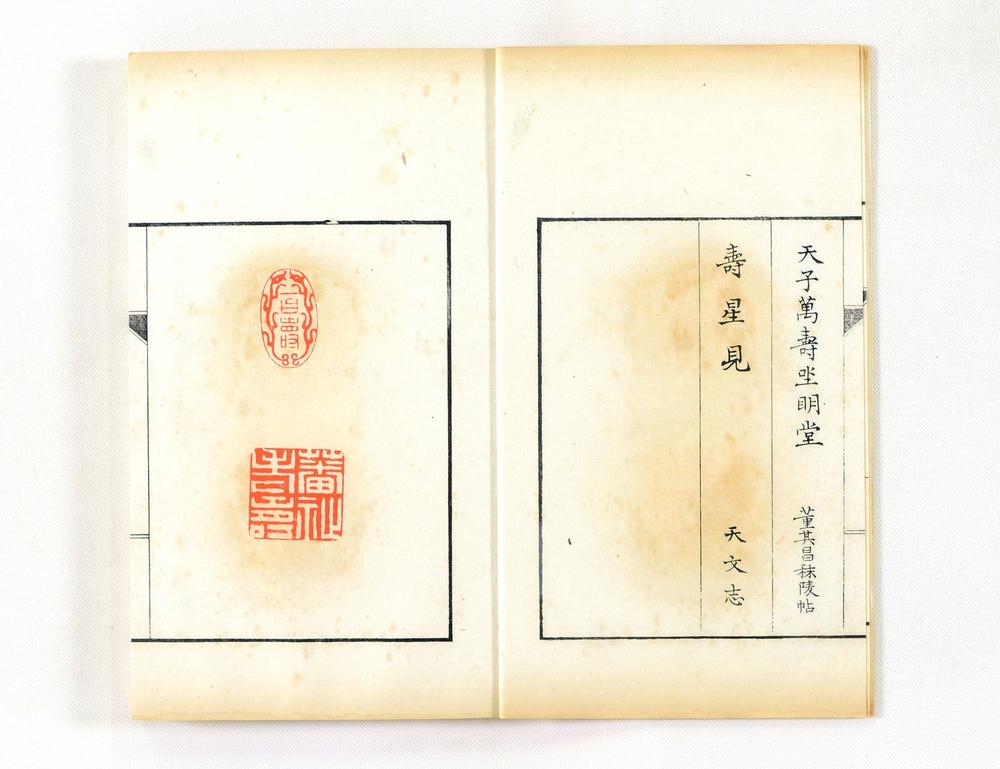 天子萬壽坐明堂
董其昌秣陵帖
壽星見
天文志